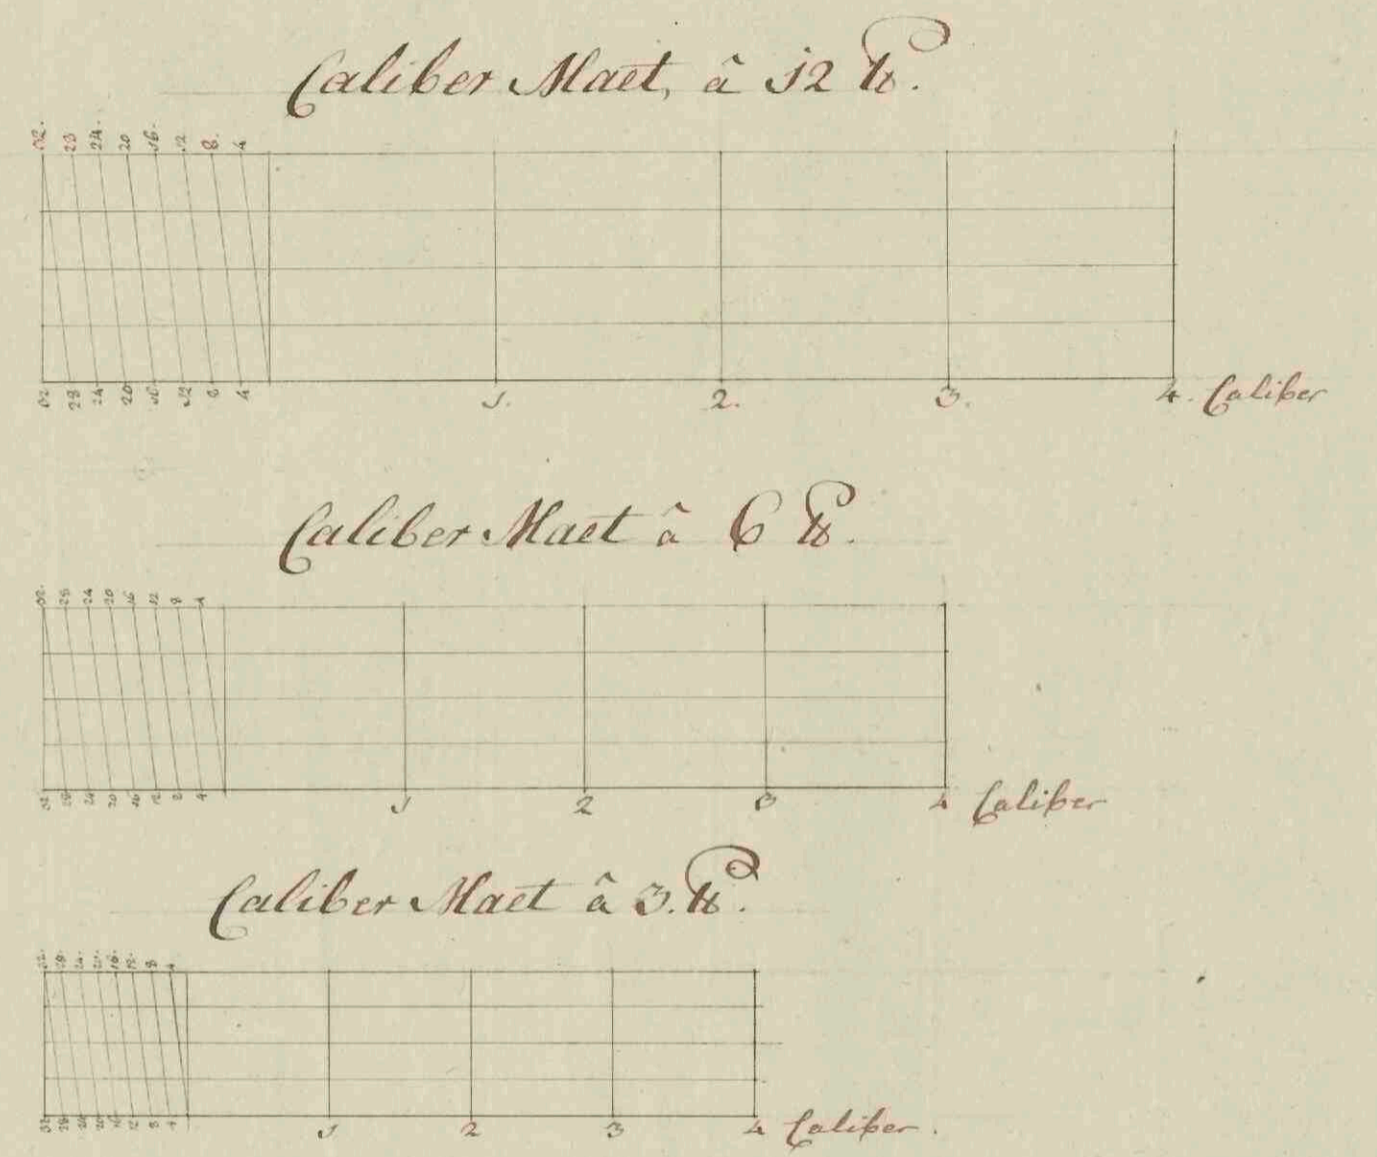 Caliber Maet, â 12 ℔.
32. 28 24. 20 16. 12 8. 4
32 28 24 20 16 12 8 4 1. 2. 3. 4. Caliber
Caliber Maet â 6 ℔.
32. 28 24 20 16 12 8 4
32 28 24 20 16 12 8 4 1 2 3 4 Caliber
Caliber Maet â 3. ℔.
32. 28. 24. 20. 16. 12. 8 4
32 28 24 20 16 12 8 4 1 2 3 4 Caliber.